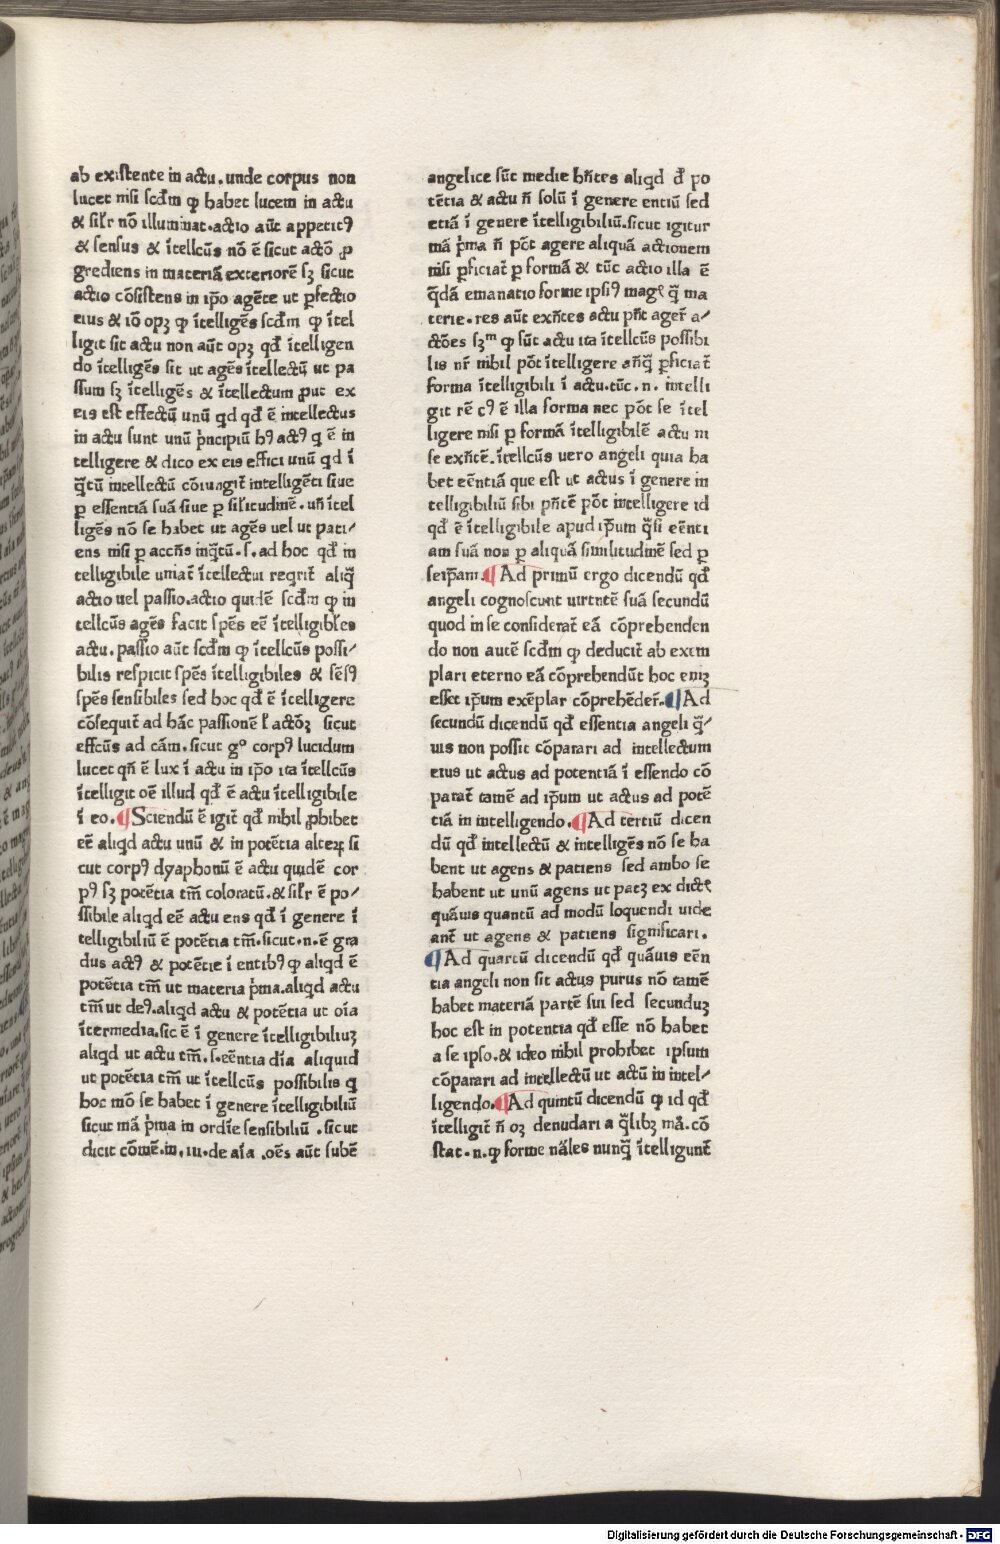 ab existente in actu. unde corpus non
lucet nisi scd̄m ꝙ habet lucem in actu
& sil̄r nō illuminat. actio aūt appetitꝰ
& sensus & ītellcūs nō ē sicut actō ꝓ
grediens in materiā exteriorē sꝫ sicut
actio cōsistens in ip̄o agēte ut ꝑfectio
eius & iō opꝫ ꝙ ītelligēs scd̄m ꝙ ītel
ligit sit actu non aūt opꝫ qd̄ ītelligen
do ītelligēs sit ut agēs ītellectū ut pa
ssum sꝫ ītelligēs & ītellectum ꝓut ex
eis est effectū unū qd qd̄ ē intellectus
in actu sunt unū p̄ncipiū hꝰ actꝰ q ē in
telligere & dico ex eis effici unū qd ī
q̄tū intellectū cōiungit̄ intelligēti siue
ꝑ essentiā suā siue ꝑ sil̄itudinē. uñ ītel
ligēs nō se habet ut agēs uel ut pati/
ens nisi ꝑ accñs inq̄tū. s. ad hoc qd̄ in
telligibile uniat̄ ītellectui reqrit̄ aliq̄
actio uel passio. actio quidē scd̄m ꝙ in
tellcūs agēs facit spēs eē ītelligibl̄es
actu. passio aūt scd̄m ꝙ ītellcūs possi/
bilis respicit spēs ītelligibiles & sēsꝰ
spēs sensibiles sed hoc qd̄ ē ītelligere
cōsequit̄ ad hāc passionē l̄ actōꝫ sicut
effcūs ad cām. sicut gº corpꝰ lucidum
lucet qñ ē lux ī actu in ip̄o ita ītellcūs
ītelligit oē illud qd̄ ē actu ītelligibile
ī eo. ¶ Sciendū ē igit̄ qd̄ nihil ꝓhibet
eē aliqd actu unū & in potētia alteꝝ si
cut corpꝰ dyaphonū ē actu quidē cor
pꝰ sꝫ potētia tm̄ coloratū. & sil̄r ē po/
ssibile aliqd eē actu ens qd̄ ī genere ī
telligibiliū ē potētia tm̄. sicut. n. ē gra
dus actꝰ & potētie ī entibꝰ ꝙ aliqd ē
potētia tm̄ ut materia p̄ma. aliqd actu
tm̄ ut deꝰ. aliqd actu & potētia ut oīa
ītermedia. sic ē ī genere ītelligibiliuꝫ
aliqd ut actu tm̄. s. eēntia dīa aliquid
ut potētia tm̄ ut ītellcūs possibilis q
hoc mō se habet ī genere ītelligibiliū
sicut mā p̄ma in ordīe sensibiliū. sicut
dicit cōmē. in. iii. de aīa. oēs aūt subē
angelice sūt medie hñtes aliqd d̄ po
tētia & actu ñ solū ī genere entiū sed
etiā ī genere ītelligibiliū. sicut igitur
mā p̄ma ñ pōt agere aliquā actionem
nisi ꝑficiat̄ ꝑ formā & tūc actio illa ē
q̄dā emanatio forme ipsiꝰ magꝭ q̄ ma
terie. res aūt exñtes actu pñt ager̄ a/
ctōes sꝫᵐ ꝙ sūt actu ita ītellcūs possibi
lis nr̄ nihil pōt ītelligere añq̄ ꝑficiat̄
forma ītelligibili ī actu. tūc. n. intelli
git rē cꝰ ē illa forma nec pōt se ītel
ligere nisi ꝑ formā ītelligibilē actu in
se exñtē. ītellcūs uero angeli quia ha
bet eēntiā que est ut actus ī genere in
telligibiliū sibi pñtē pōt intelligere id
qd̄ ē ītelligibile apud ip̄um q̄si eēnti
am suā non ꝑ aliquā similitudinē sed ꝑ
seip̄am. ¶ Ad primū ergo dicendū qd̄
angeli cognoscunt uirtutē suā secundū
quod in se considerat̄ eā cōprehenden
do non autē scd̄m ꝙ deducit̄ ab exem
plari eterno eā cōprehendūt hoc eniꝫ
esset ip̄um exēplar cōprehēder̄. ¶ Ad
secundū dicendū qd̄ essentia angeli q̄/
uis non possit cōparari ad intellectum
eius ut actus ad potentiā ī essendo cō
parat̄ tamē ad ip̄um ut actus ad potē
tiā in intelligendo. ¶ Ad tertiū dicen
dū qd̄ intellectū & intelligēs nō se ha
bent ut agens & patiens sed ambo se
habent ut unū agens ut patꝫ ex dictꝭ
quāuis quantū ad modū loquendi uide
ant̄ ut agens & patiens significari.
¶ Ad quartū dicendū qd̄ quāuis eēn
tia angeli non sit actus purus nō tamē
habet materiā partē sui sed secunduꝫ
hoc est in potentia qd̄ esse nō habet
a se ipso. & ideo nihil prohibet ipsum
cōparari ad intellectū ut actū in intel/
ligendo. ¶ Ad quintū dicendū ꝙ id qd̄
ītelligit̄ ñ oꝫ denudari a q̄libꝫ mā. cō
stat. n. ꝙ forme nāles nunq̄ ītelligunt̄
Digitalisierung gefördert durch die Deutsche Forschungsgemeinschaft - DFG